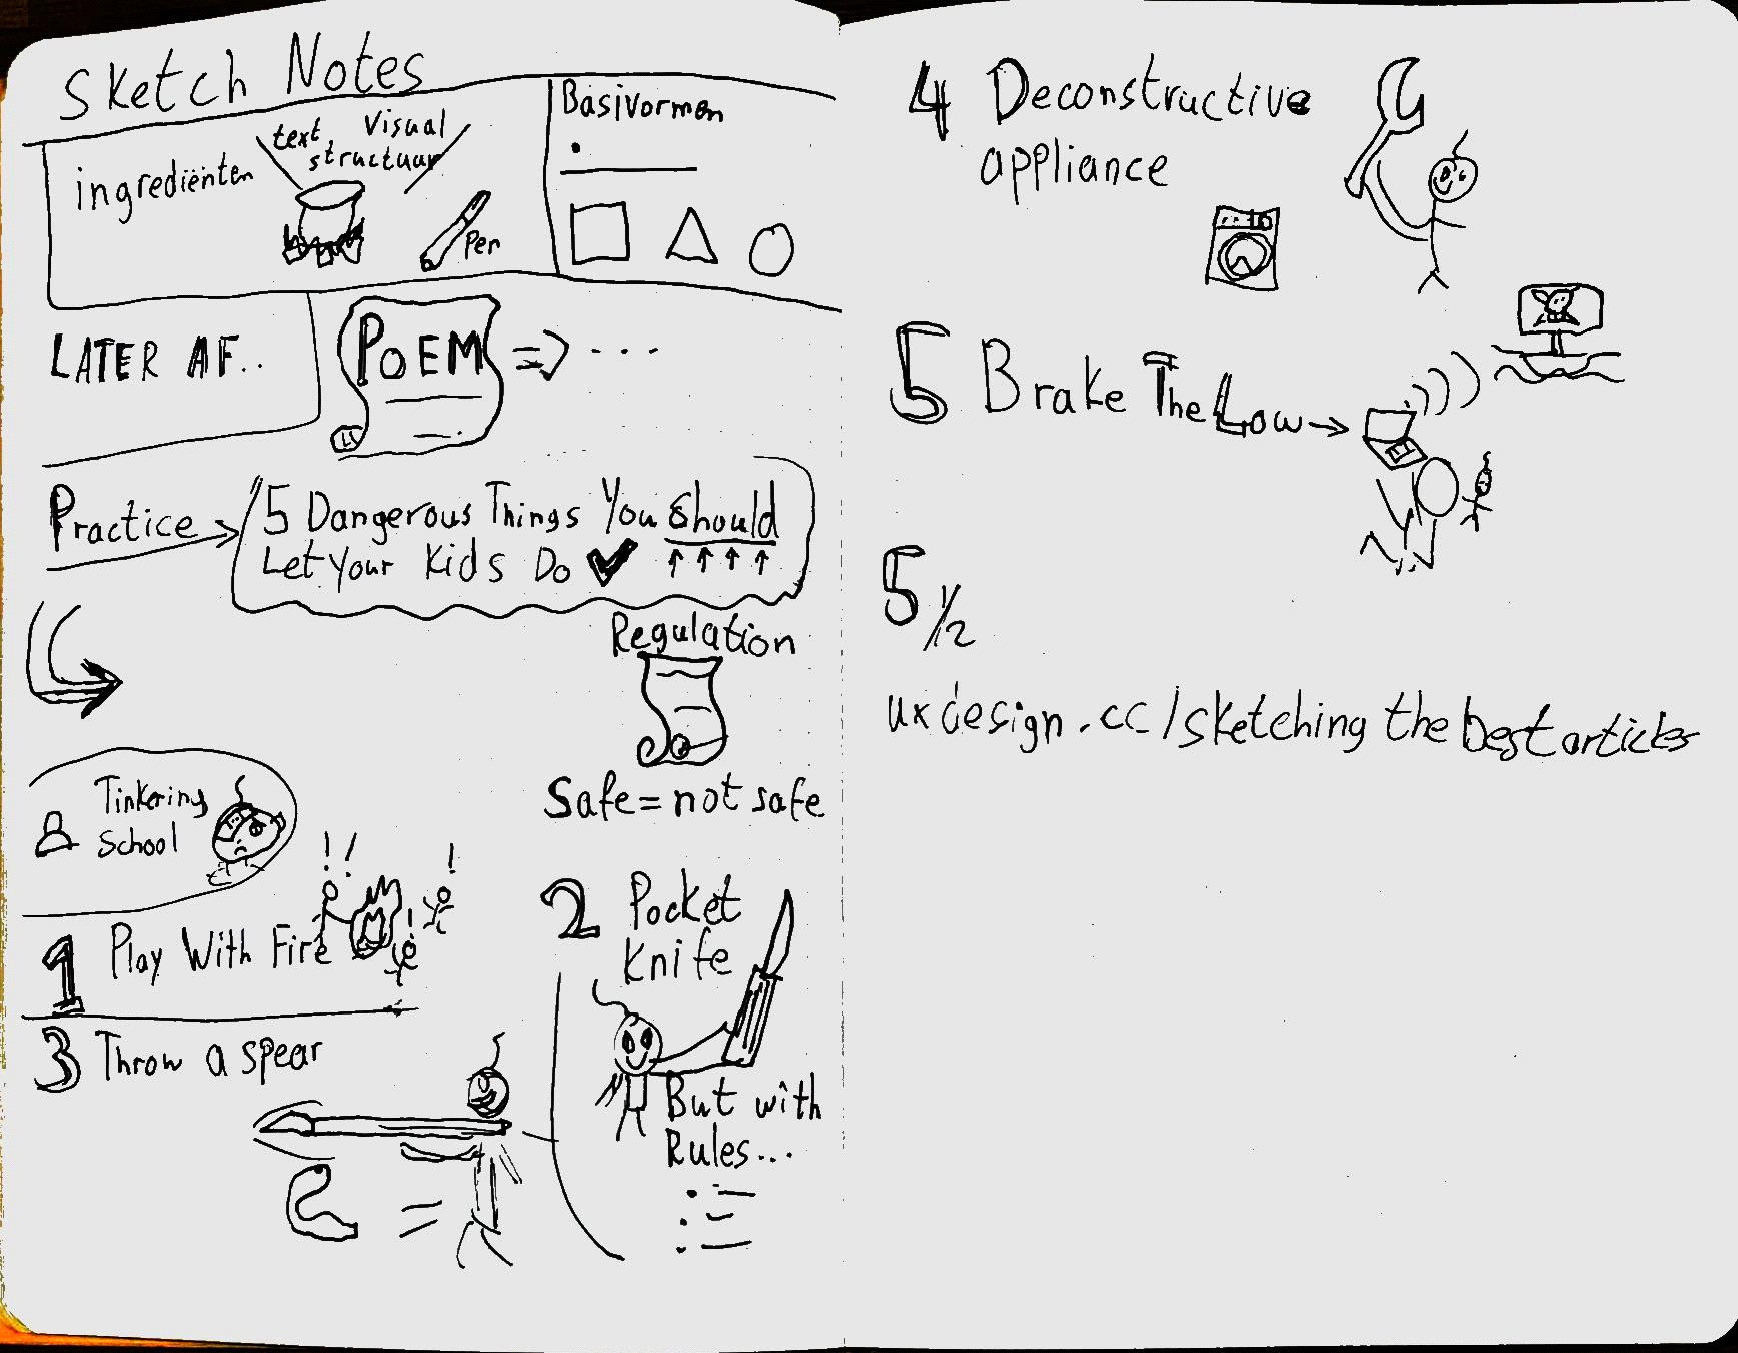 Sketch Notes
ingrediënten
text Visual
structuur
Pen
Basivormen
LATER AF..
POEM => ...
Practice
5 Dangerous Things You Should
Let Your Kids Do
Regulation
Safe = not safe
Tinkering
School
!! !
!
1 Play With Fire
2 Pocket
Knife
But with
Rules...
3 Throw a spear
=
4 Deconstructive
appliance
5 Brake The Low
5 1/2
uxdesign.cc/sketching the best articles